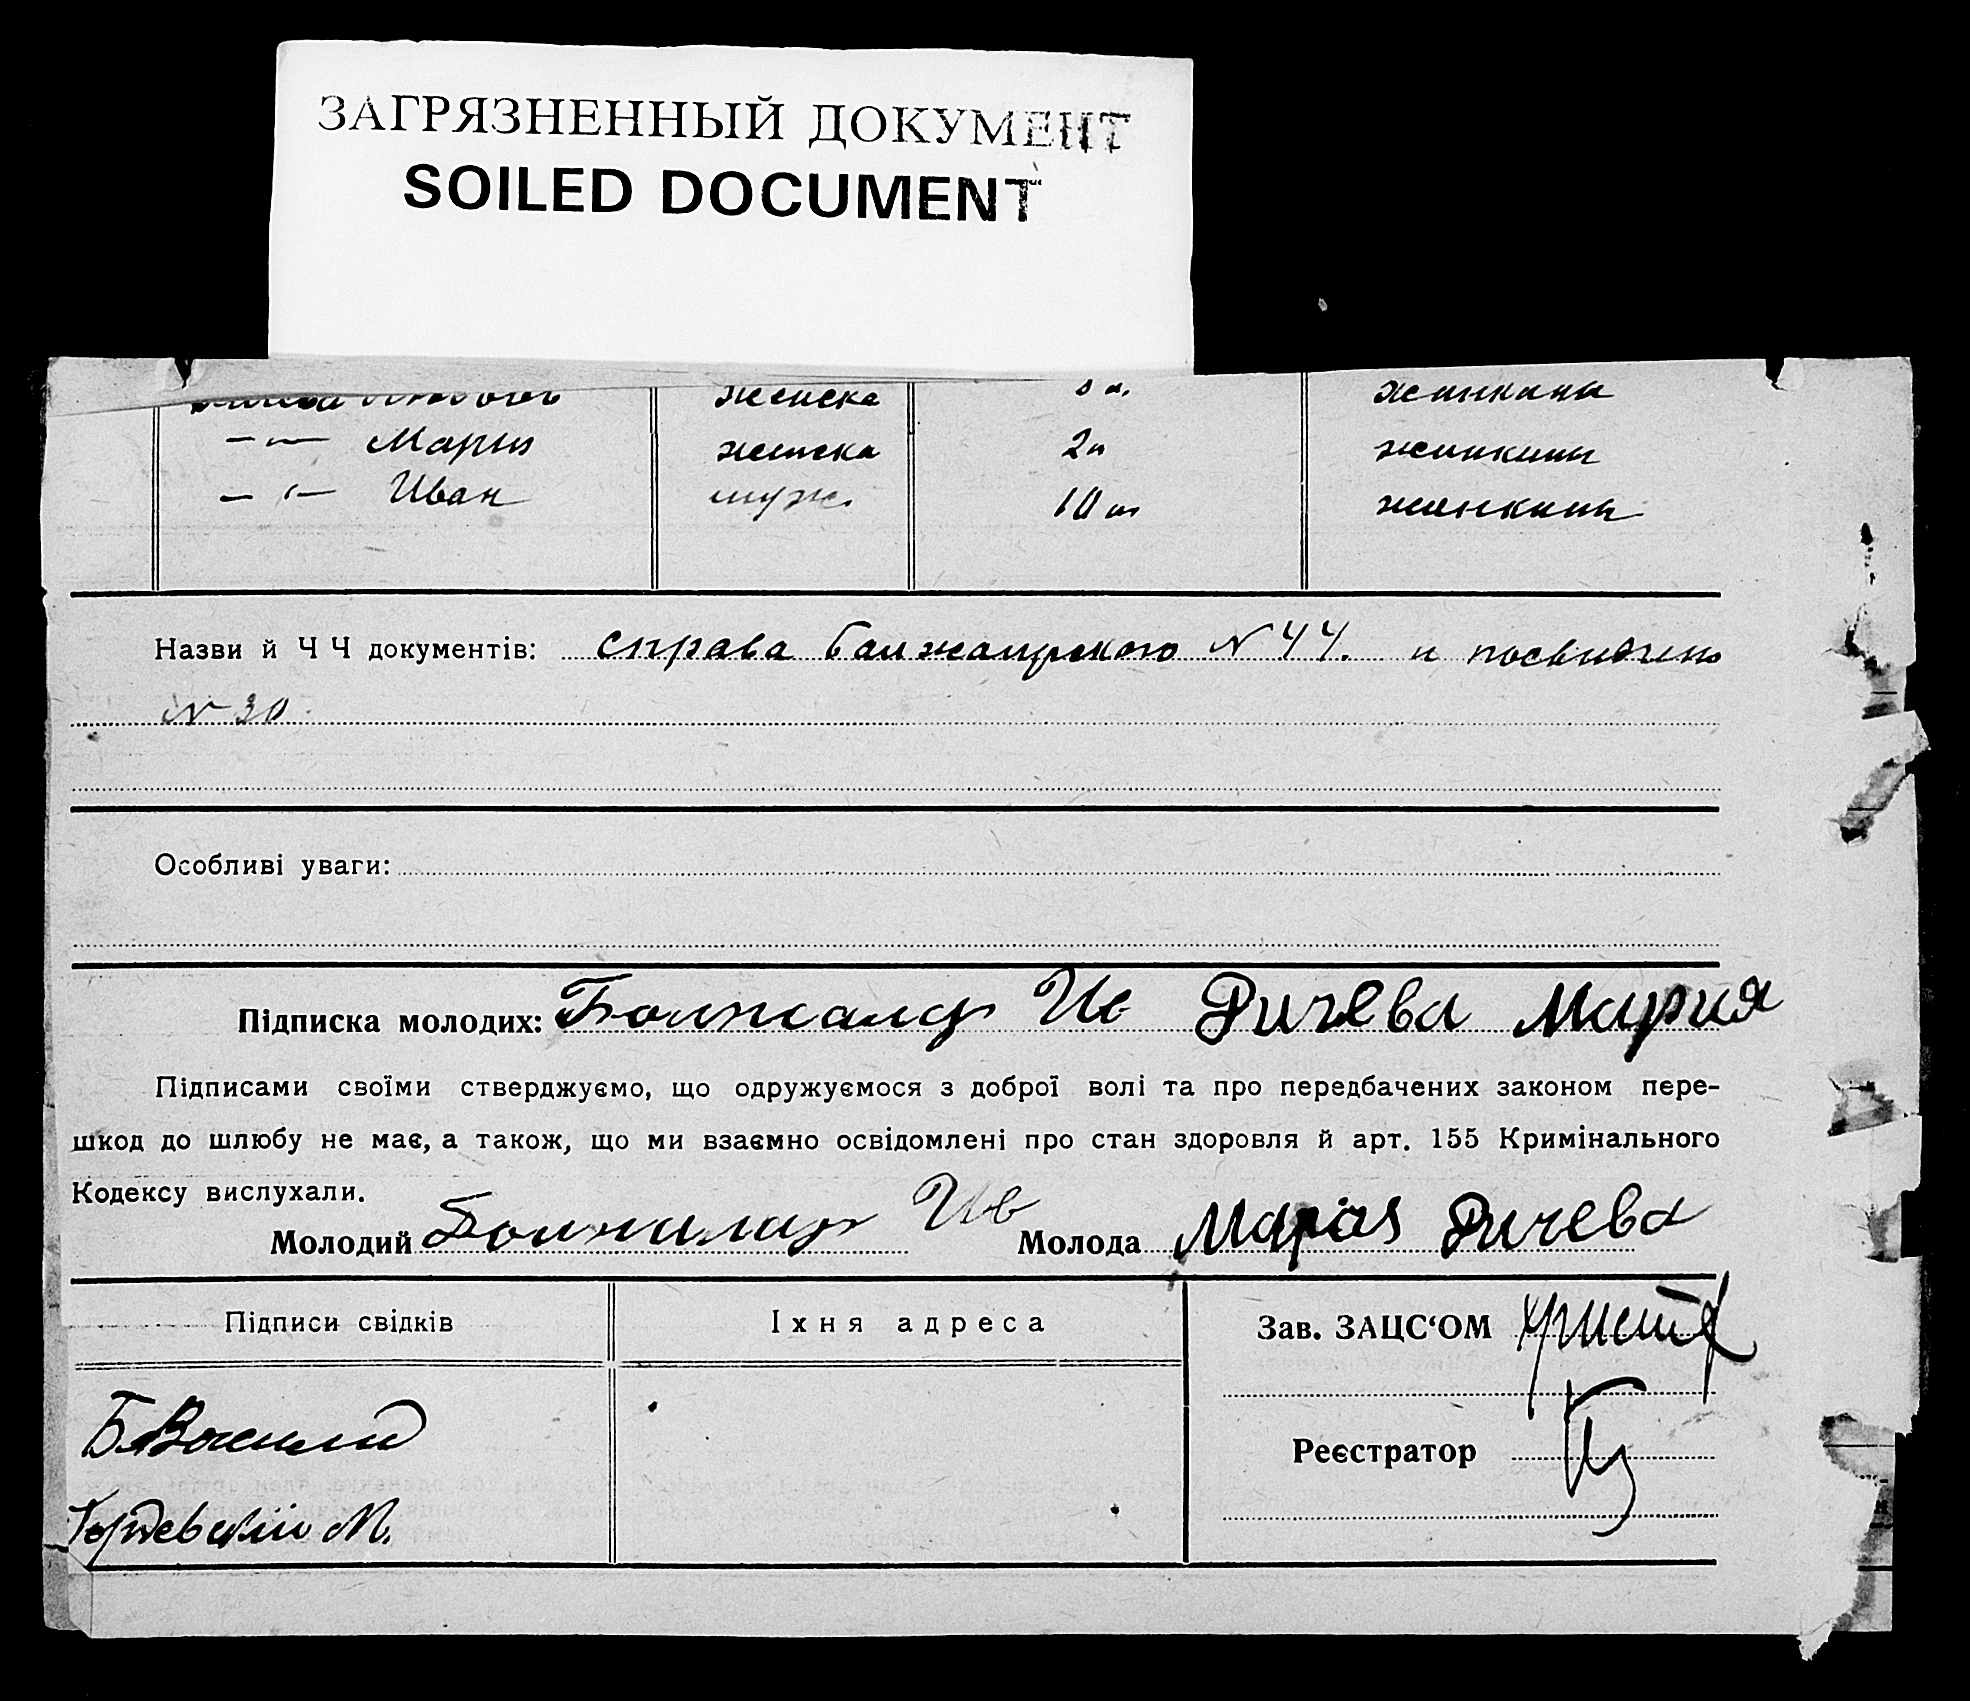 ЗАГРЯЗНЕННЫЙ ДОКУМЕНТ
SOILED DOCUMENT
женска жинкины
Мария женска 2 жинкины
Иван муж. 10 жинкины
Назви й Ч Ч документів: справа N 44. и
N 30
Особливі уваги:
Підписка молодих: Болжалар Ив Ричева Мария
Підписами своїми стверджуємо, що одружуємося з доброї волі та про передбачених законом пере-
шкод до шлюбу не має, а також, що ми взаємно освідомлені про стан здоровля й арт. 155 Кримінального
Кодексу вислухали.
Молодий Ив Молода Марія Ричева
Підписи свідків Їхня адреса Зав. ЗАЦС‘ОМ
Реєстратор
М.